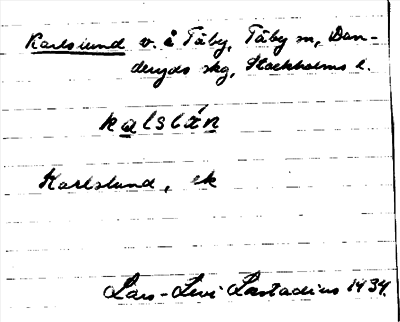 Karlslund v. å Täby, Täby sn, Dan-
deryds skg, Stockholms l.
kalslán
Karlslund, ek
Lars-Levi Læstadius 1934.